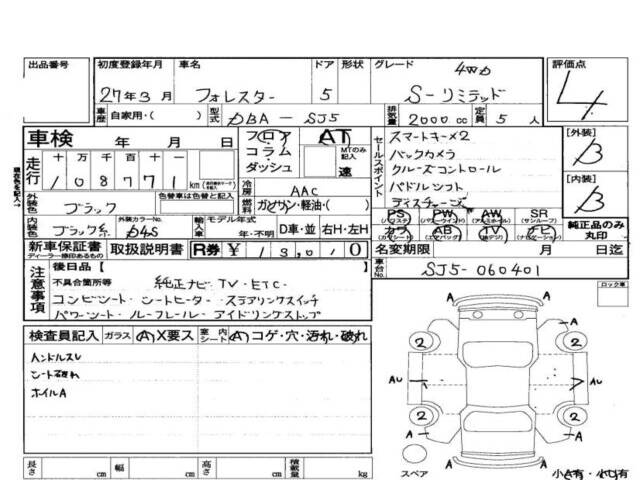 出品番号 初度登録年月 車名 ドア 形状 グレード 評価点
27年3月 フォレスター 5 4WD S-リミテッド 4
車歴 自家用・( ) 型式 DBA-SJ5 排気量 2000cc 定員 5人
車検 年 月 日 フロア コラム ダッシュ シフト AT MTのみ記入 速
セールスポイント スマートキー×2
バックカメラ
クルーズコントロール
パドルシフト
ディスチャージ
[外装] B
[内装] B
走行 十万千百十一 108771 km
冷房 AAC
燃料 ガソリン・軽油・( )
外装色 ブラック 色替車は色替と記入
内装色 ブラック系 外装カラーNo. D4S 輸入車 モデル年式 年・不明 D車・並 右H・左H
PS PW AW SR
(パワステ) (パワーウインド) (アルミホイル) (サンルーフ)
カワ AB TV ナビ
(カワシート) (エアバッグ) (地デジ) (ナビゲーション)
純正品のみ丸印
新車保証書 ディーラー捺印あるもの 取扱説明書 R券 ¥13,010
名変期限 月 日迄
車台No. SJ5-060401
注意事項 後日品【
不具合箇所等 純正ナビ・TV・ETC・
コンビシート・シートヒーター・ステアリングスイッチ
パワーシート・ルーフレール・アイドリングストップ
ロック車
検査員記入 ガラス (A)X要ス 室内シート (A)コゲ・穴・汚れ・破れ
ハンドルスレ
シート破れ
ホイルA
A A
2 2
A A
AU AU
2 2
A A A
スペア 小A有・小凹有
長さ cm 幅 cm 高さ cm 積載量 kg